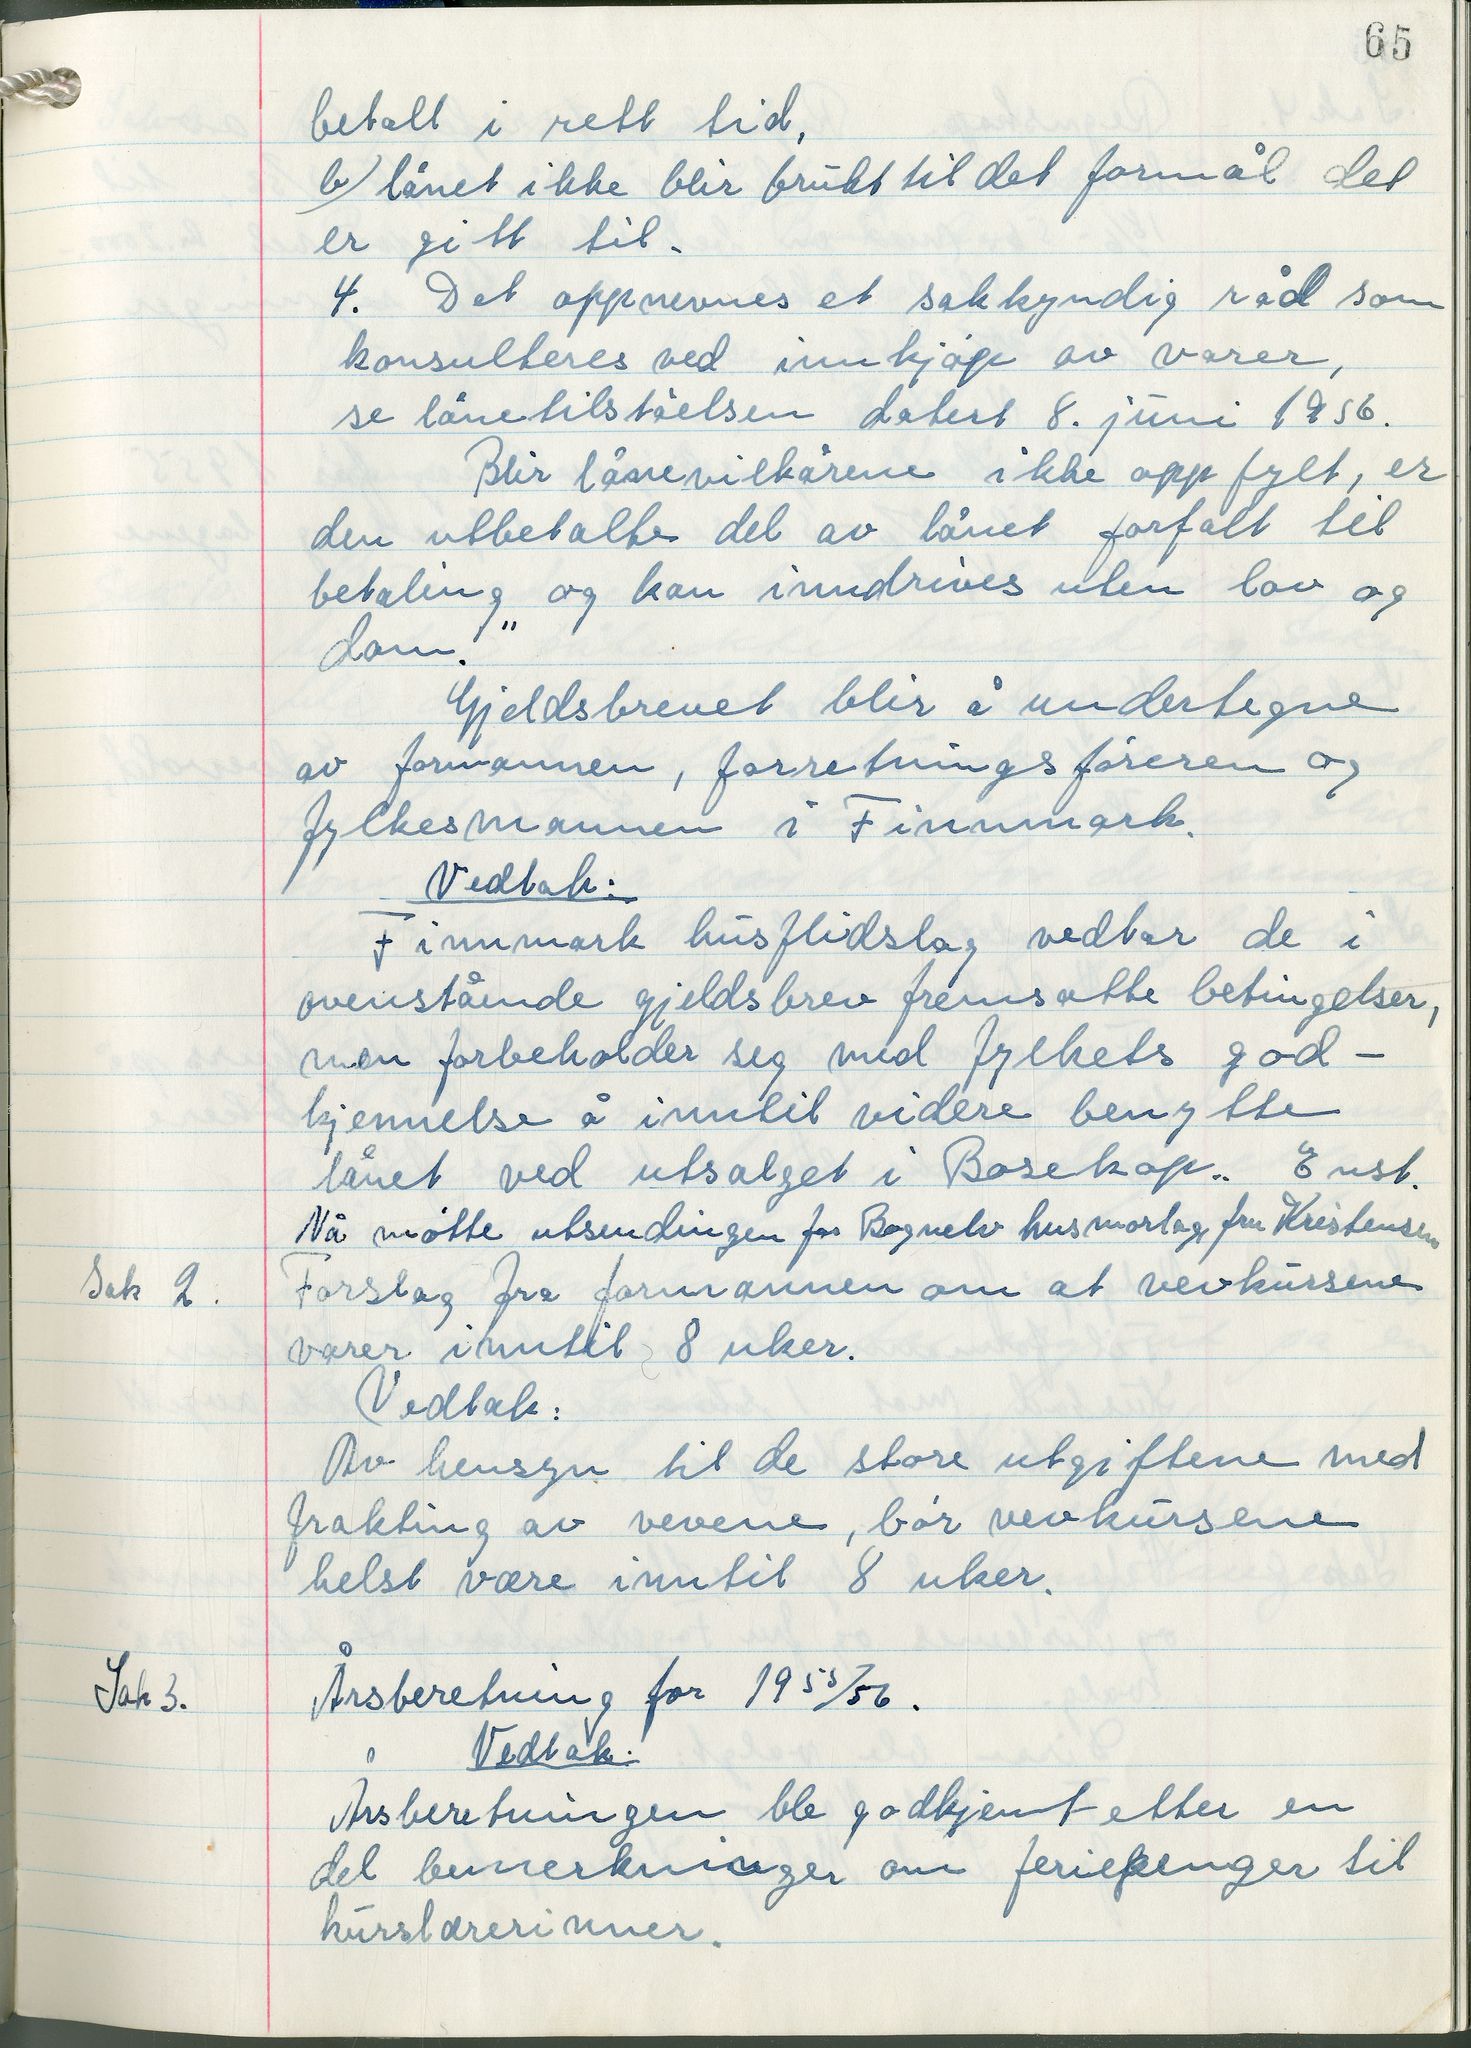 65
betalt i rett tid,
b) lånet ikke blir brukt til det formål det
er gitt til.
4. Det oppnevnes et sakkyndig råd som
konsulteres ved innkjøp av varer,
se lånetilståelsen datert 8. juni 1956.
Blir lånevilkårene ikke oppfylt, er
den utbetalte del av lånet forfalt til
betaling og kan inndrives uten lov og
dom."
Gjeldsbrevet blir å undertegne
av formannen, forretningsføreren og
fylkesmannen i Finnmark.
Vedtak:
Finnmark husflidslag vedtar de i
ovenstående gjeldsbrev fremsatte betingelser,
men forbeholder seg med fylkets god-
kjennelse å inntil videre benytte
lånet ved utsalget i Bosekop.. Enst.
Nå møtte utsendingen for Bognelv husmorlag fru Kristensen
Sak 2. Forslag fra formannen om at vevkursene
varer inntil 8 uker.
Vedtak:
Av hensyn til de store utgiftene med
frakting av vevene, bør vevkursene
helst være inntil 8 uker.
Sak 3. Årsberetning for 1955/56.
Vedtak:
Årsberetningen ble godkjent etter en
del bemerkninger om feriepenger til
kurslærerinner.